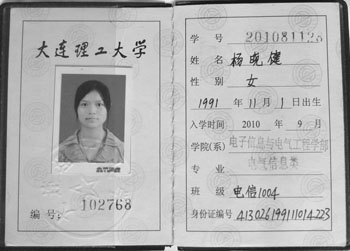 大连理工大学
编号: 102768
学号 201081128
姓名 杨晓健
性别 女
1991 年 11 月 1 日出生
入学时间 2010 年 9 月
学院(系) 电子信息与电气工程学部
专业 电气信息类
班级 电信1004
身份证编号 413026199111014223